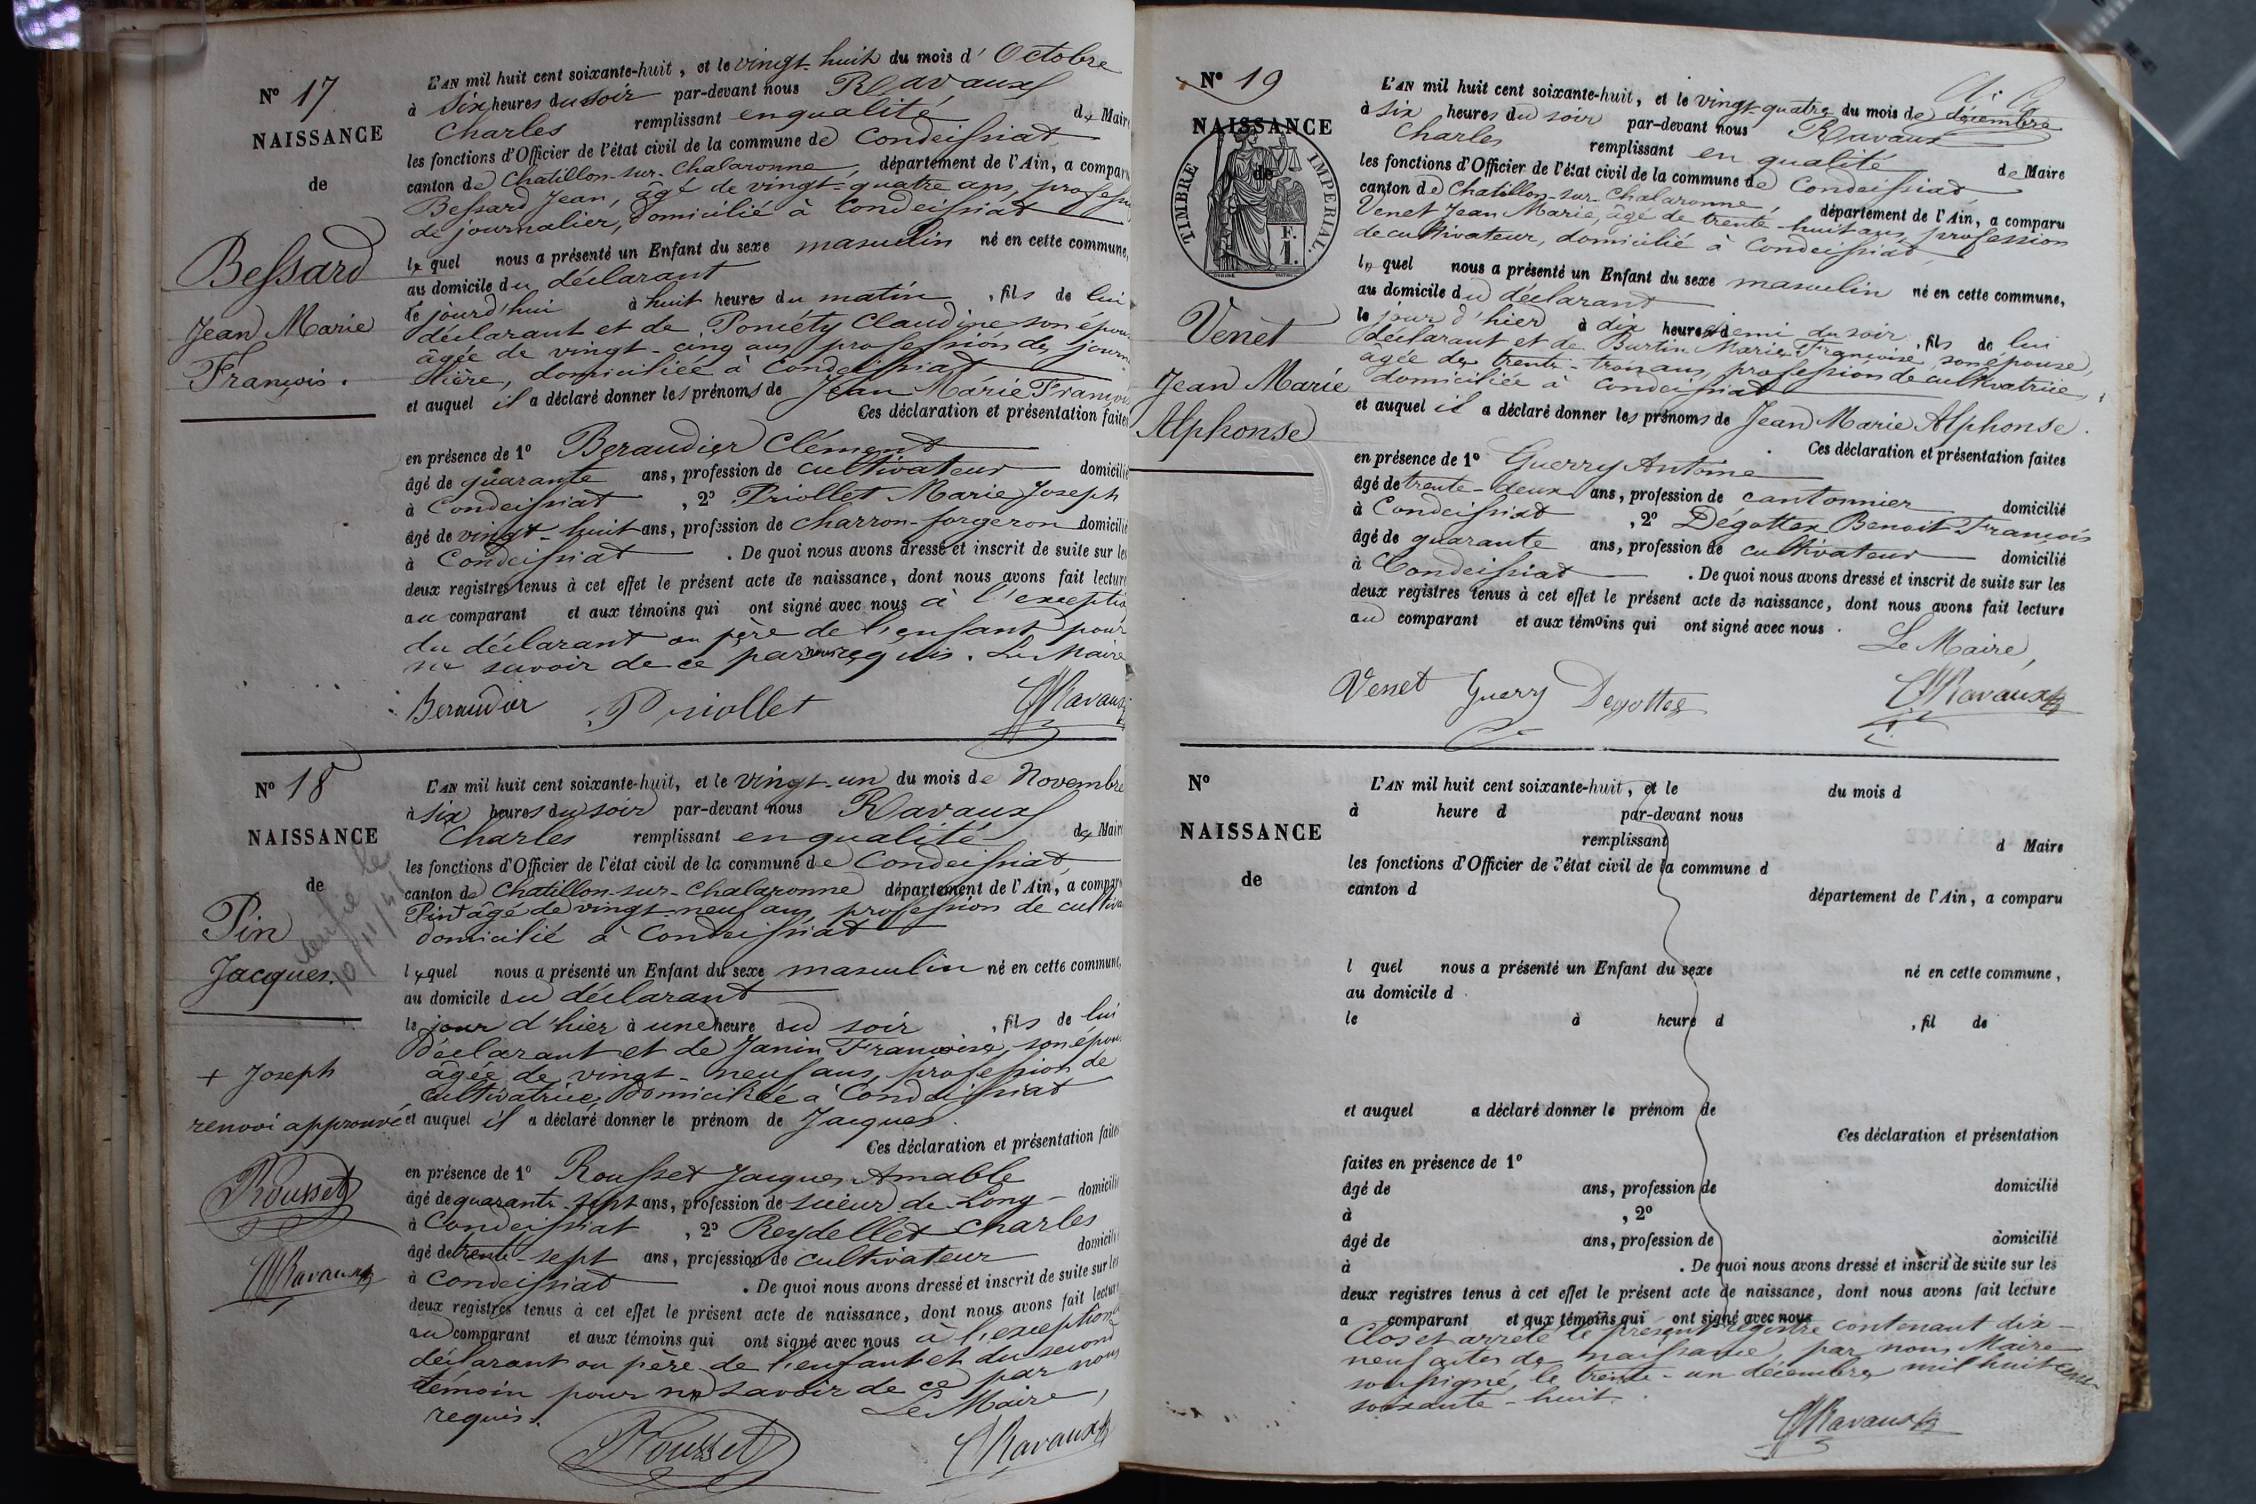 N° 17
NAISSANCE
de
Bessard
Jean Marie
François.
L'AN mil huit cent soixante-huit, et le vingt-huit du mois d'Octobre
à six heures du soir par-devant nous Ravaux
Charles remplissant en qualité de Maire
les fonctions d'Officier de l'état civil de la commune de Condeissiat
canton de Chatillon-sur-Chalaronne, département de l'Ain, a comparu
Bessard Jean, âgé de vingt-quatre ans, profession
de journalier, domicilié à Condeissiat
lequel nous a présenté un Enfant du sexe masculin né en cette commune,
au domicile du déclarant
le jourd'hui à huit heures du matin, fils de lui
déclarant et de Poncéty Claudine son épouse
âgée de vingt-cinq ans profession de journa
lière, domiciliée à Condeissiat
et auquel il a déclaré donner les prénoms de Jean Marie François
Ces déclaration et présentation faites
en présence de 1° Beraudier Clément
âgé de quarante ans, profession de cultivateur domicilié
à Condeissiat, 2° Priollet Marie Joseph
âgé de vingt-huit ans, profession de charron-forgeron domicilié
à Condeissiat. De quoi nous avons dressé et inscrit de suite sur les
deux registres tenus à cet effet le présent acte de naissance, dont nous avons fait lecture
au comparant et aux témoins qui ont signé avec nous à l'exception
du déclarant ou père de l'enfant pour
ne savoir de ce par nous requis. Le Maire
Beraudier Priollet Ravaux
N° 18
NAISSANCE
de
Pin
Jacques.
+ Joseph
renvoi approuvé
Rousset
Ravaux
L'AN mil huit cent soixante-huit, et le vingt-un du mois de Novembre
à six heures du soir par-devant nous Ravaux
Charles remplissant en qualité de Maire
les fonctions d'Officier de l'état civil de la commune de Condeissiat,
canton de Chatillon-sur-Chalaronne département de l'Ain, a comparu
Pin + âgé de vingt-neuf ans, profession de cultiva
domicilié à Condeissiat
lequel nous a présenté un Enfant du sexe masculin né en cette commune,
au domicile du déclarant
le jour d'hier à une heure du soir, fils de lui
déclarant et de Janin Françoise, son épouse
âgée de vingt-neuf ans, profession de
cultivatrice, domiciliée à Condeissiat
et auquel il a déclaré donner le prénom de Jacques.
Ces déclaration et présentation faites
en présence de 1° Rousset Jacques Amable
âgé de quarante-sept ans, profession de scieur de Long domicilié
à Condeissiat, 2° Reydellet Charles
âgé de trente-sept ans, profession de cultivateur domicilié
à Condeissiat. De quoi nous avons dressé et inscrit de suite sur les
deux registres tenus à cet effet le présent acte de naissance, dont nous avons fait lecture
au comparant et aux témoins qui ont signé avec nous à l'exception
déclarant ou père de l'enfant et du second
témoin pour ne savoir de ce par nous
requis. Le Maire,
Rousset Ravaux
N° 19
NAISSANCE
de
TIMBRE IMPERIAL.
F.
1.
Venet
Jean Marie
Alphonse
L'AN mil huit cent soixante-huit, et le vingt-quatre du mois de décembre
à six heures du soir par-devant nous Ravaux
Charles remplissant en qualité de Maire
les fonctions d'Officier de l'état civil de la commune de Condeissiat
canton de Chatillon-sur-Chalaronne, département de l'Ain, a comparu
Venet Jean Marie, âgé de trente-huit ans, profession
de cultivateur, domicilié à Condeissiat
lequel nous a présenté un Enfant du sexe masculin né en cette commune,
au domicile du déclarant
le jour d'hier à dix heures demi du soir, fils de lui
déclarant et de Burtin Marie Françoise, son épouse,
âgée de trente-trois ans, profession de cultivatrice,
domiciliée à Condeissiat
et auquel il a déclaré donner les prénoms de Jean Marie Alphonse.
Ces déclaration et présentation faites
en présence de 1° Guerry Antoine
âgé de trente-deux ans, profession de cantonnier domicilié
à Condeissiat, 2° Dégottex Benoit François
âgé de quarante ans, profession de cultivateur domicilié
à Condeissiat. De quoi nous avons dressé et inscrit de suite sur les
deux registres tenus à cet effet le présent acte de naissance, dont nous avons fait lecture
au comparant et aux témoins qui ont signé avec nous.
Le Maire,
Venet Guerry Degottex Ravaux
N°
NAISSANCE
de
L'AN mil huit cent soixante-huit, et le du mois d
à heure d par-devant nous
remplissant d Maire
les fonctions d'Officier de l'état civil de la commune d
canton d département de l'Ain, a comparu
l quel nous a présenté un Enfant du sexe né en cette commune,
au domicile d
le à heure d , fil de
et auquel a déclaré donner le prénom de
Ces déclaration et présentation
faites en présence de 1°
âgé de ans, profession de domicilié
à , 2°
âgé de ans, profession de domicilié
à . De quoi nous avons dressé et inscrit de suite sur les
deux registres tenus à cet effet le présent acte de naissance, dont nous avons fait lecture
a comparant et aux témoins qui ont signé avec nous
Clos et arrêté le présent registre contenant dix-
neuf actes de naissance, par nous Maire
soussigné, le trente-un décembre mil huit cent
soixante-huit.
Ravaux